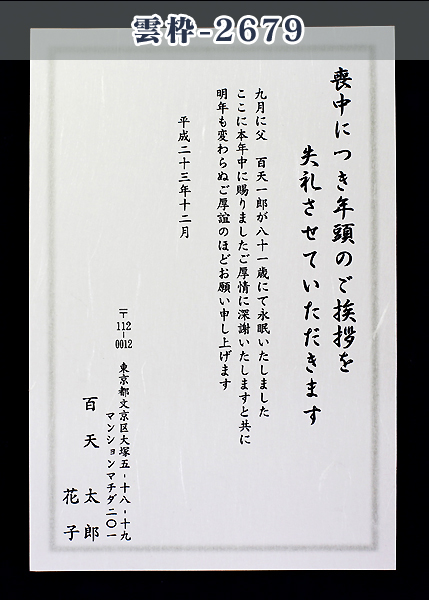 雲枠-2679
喪中につき年頭のご挨拶を
失礼させていただきます
九月に父　百天一郎が八十一歳にて永眠いたしました
ここに本年中に賜りましたご厚情に深謝いたしますと共に
明年も変わらぬご厚誼のほどお願い申し上げます
平成二十三年十二月
〒112-0012
東京都文京区大塚五-十八-十九
マンションマチダ二〇一
百天　太郎
花子